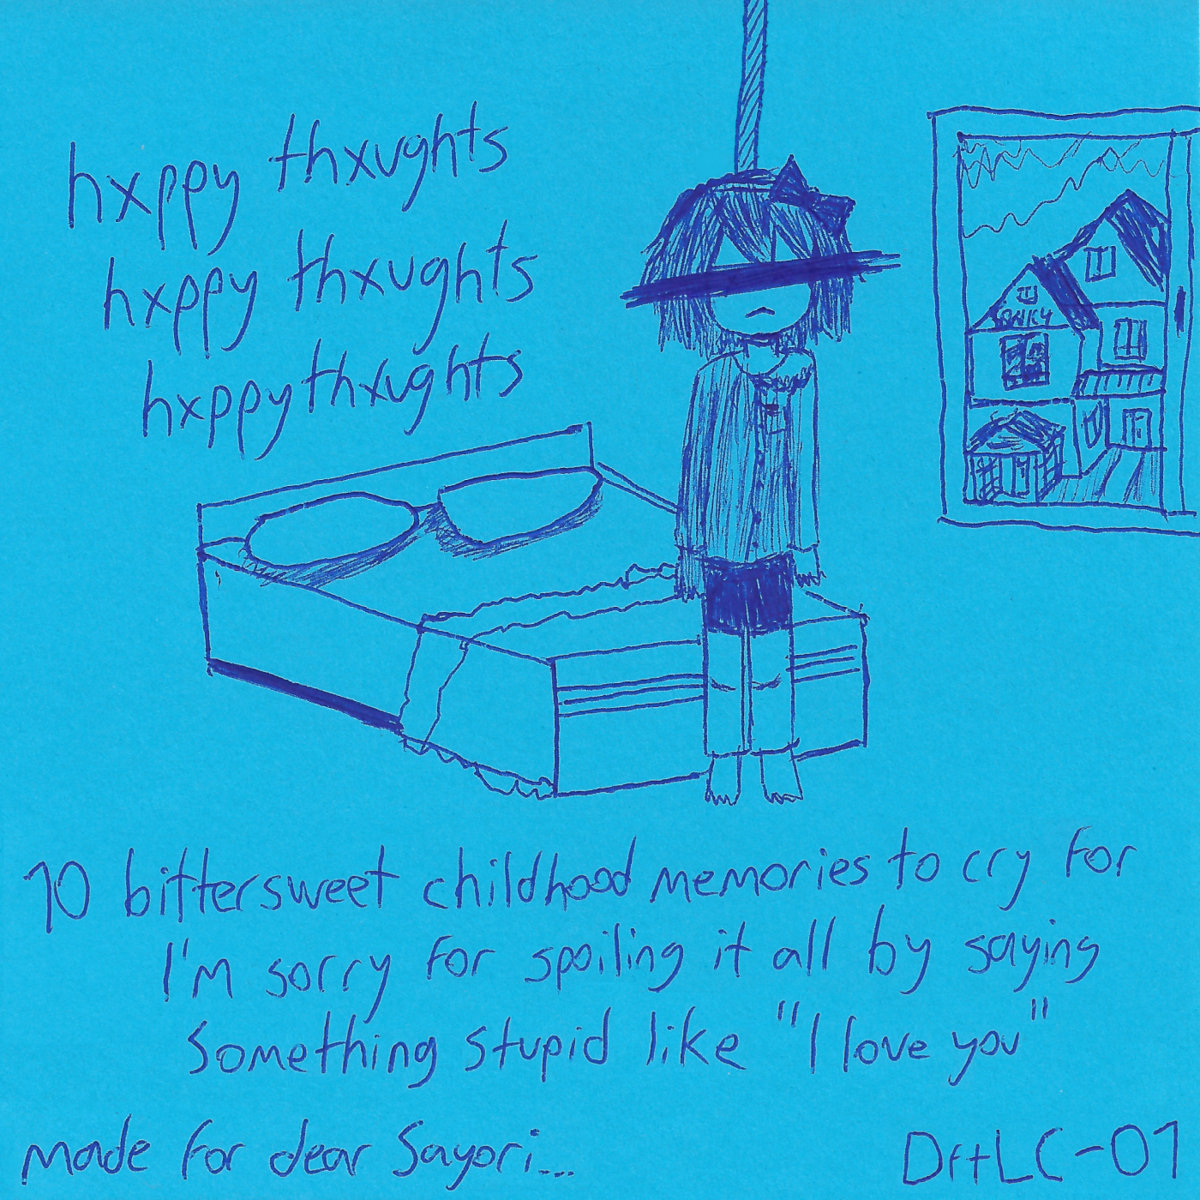 hxppy thxughts
hxppy thxughts
hxppy thxughts
10 bittersweet childhood memories to cry for
I'm sorry for spoiling it all by saying
something stupid like "I love you"
made for dear Sayori...
DftLC-01